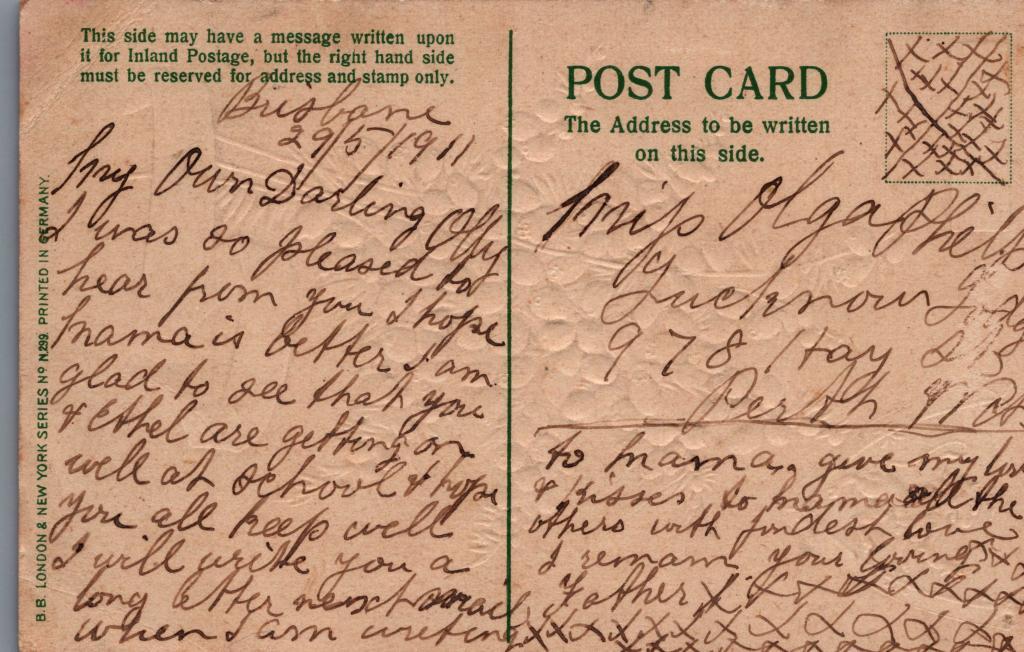 This side may have a message written upon
it for Inland Postage, but the right hand side
must be reserved for address and stamp only.
Brisbane
29/5/1911
My Own Darling Olly
I was so pleased to
hear from you I hope
Mama is better I am
glad to see that you
& Ethel are getting on
well at school & hope
you all keep well
I will write you a
long letter next mail
when I am writing
B.B. LONDON & NEW YORK SERIES No N299. PRINTED IN GERMANY.
POST CARD
The Address to be written
on this side.
Miss Olga Phelp
Lucknow
978 Hay St
Perth WA
to Mama, give my love
& kisses to Mama all the
others with fondest love
I remain your loving xx
Father X X X X X X X X
X X X X X X X X X X X